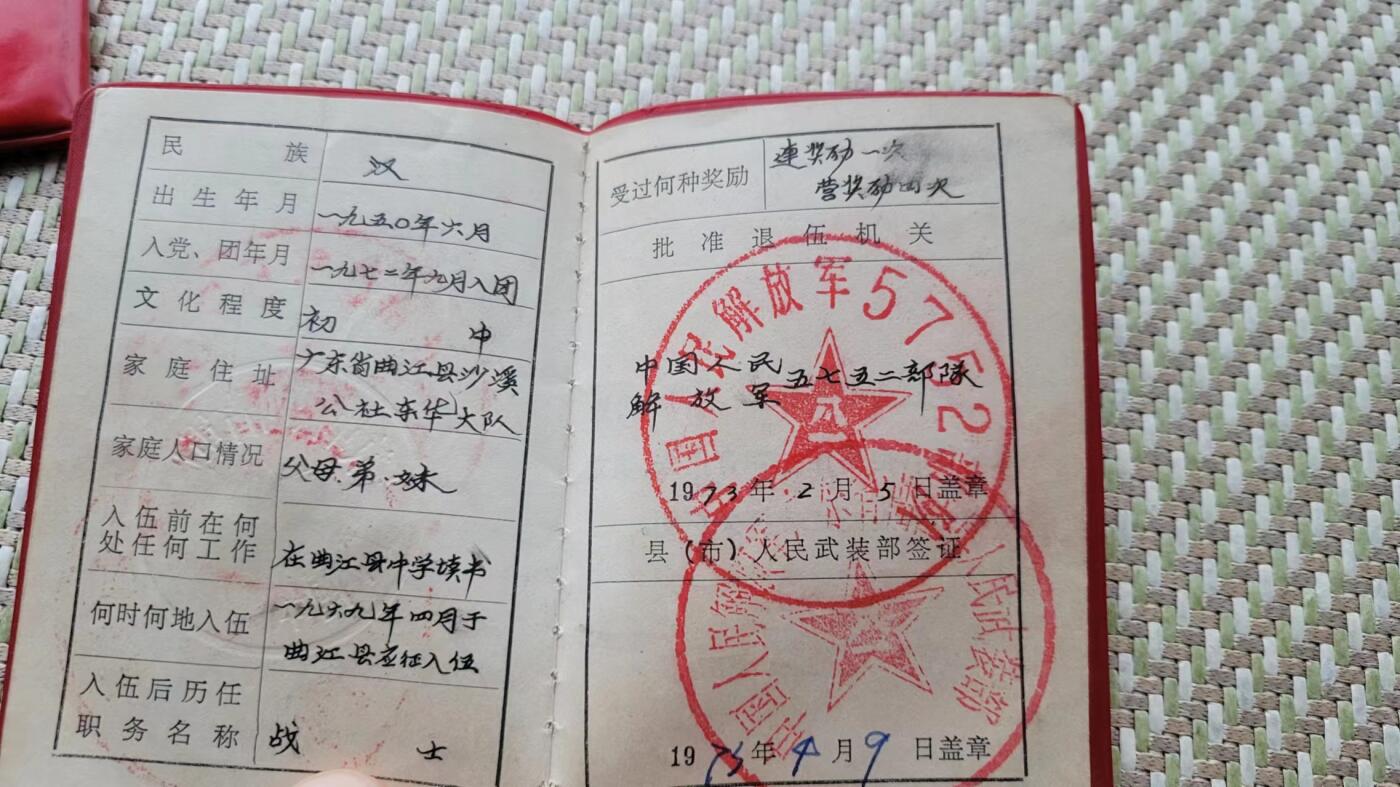 民族 汉
出生年月 一九五〇年六月
入党、团年月 一九七二年九月入团
文化程度 初中
家庭住址 广东省曲江县沙溪
公社东华大队
家庭人口情况 父母.弟.妹
入伍前在何
处任何工作 在曲江县中学读书
何时何地入伍 一九六九年四月于
曲江县应征入伍
入伍后历任
职务名称 战士
受过何种奖励 連奖励一次
营奖励四次
批准退伍机关
中国人民解放军5752部队
八一
中国人民
解放军五七五二部隊
1973年2月5日盖章
县（市）人民武装部签证
中国人民解放军
人民武装部
1973年4月9日盖章